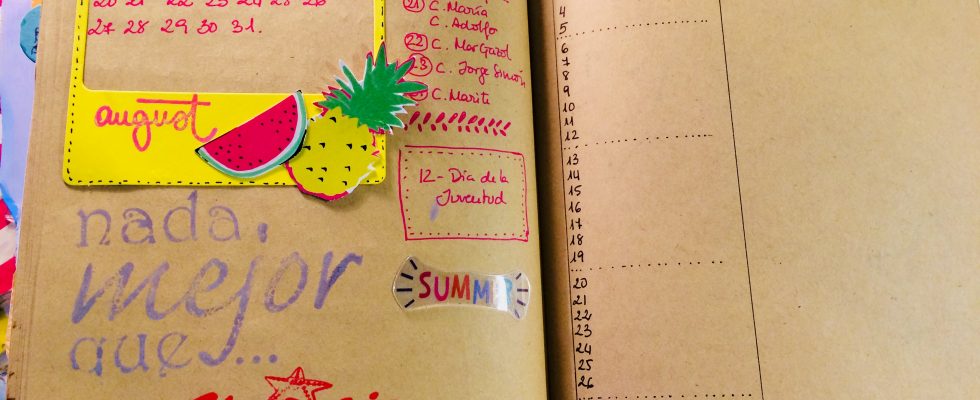 27 28 29 30 31.
august
21 C. María
C. Adolfo
22 C. Mar Gazol
23 C. Jorge Simón
C. Marite
12 - Día de la
Juventud
nada
mejor
que...
SUMMER
4
5
6
7
8
9
10
11
12
13
14
15
16
17
18
19
20
21
22
23
24
25
26